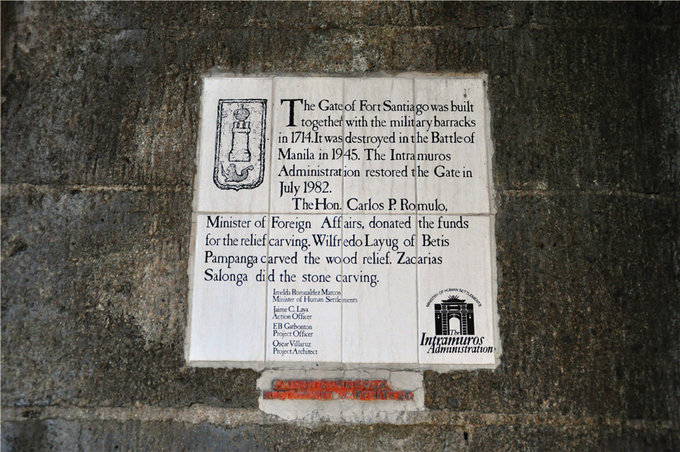 The Gate of Fort Santiago was built
together with the military barracks
in 1714. It was destroyed in the Battle of
Manila in 1945. The Intramuros
Administration restored the Gate in
July 1982.
The Hon. Carlos P. Romulo,
Minister of Foreign Affairs, donated the funds
for the relief carving. Wilfredo Layug of Betis
Pampanga carved the wood relief. Zacarias
Salonga did the stone carving.
Imelda Romualdez Marcos
Minister of Human Settlements
Jaime C. Laya
Action Officer
E.B Gatbonton
Project Officer
Oscar Villaruz
Project Architect
MINISTRY OF HUMAN SETTLEMENTS
The
Intramuros
Administration